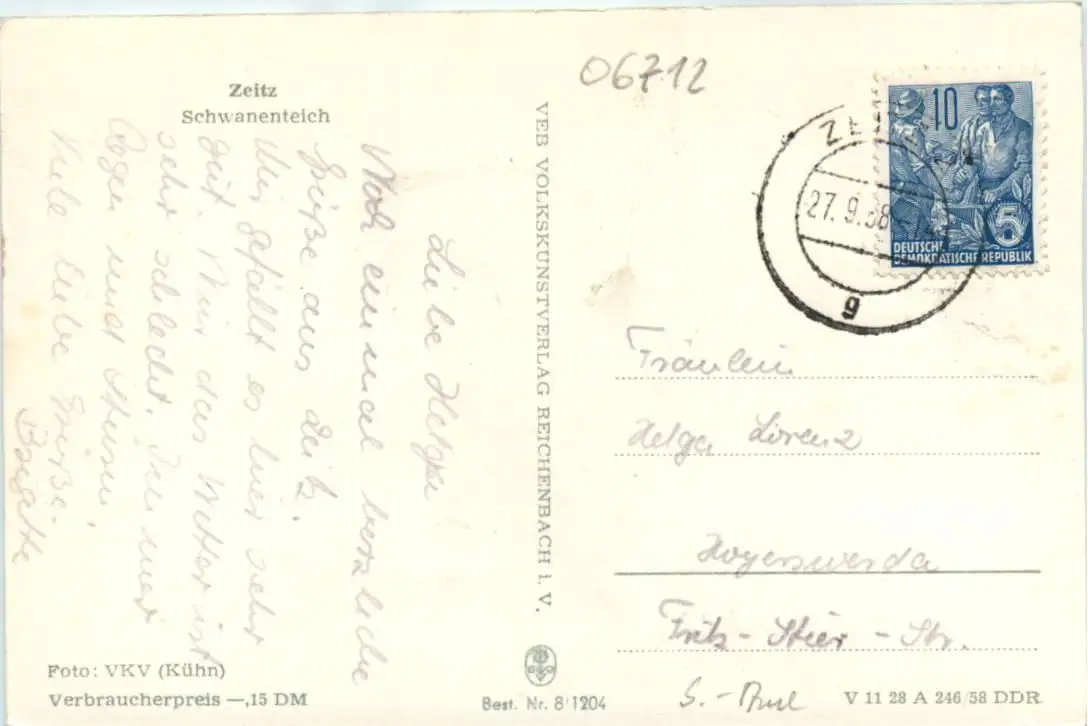 Zeitz
Schwanenteich
06712
Liebe Helga!
Noch einmal herzliche
Grüße aus Zeitz.
Mir gefällt es hier sehr
gut. Nur das Wetter ist
sehr schlecht. Immer
Regen und
Viele liebe Grüße
Brigitte
Foto: VKV (Kühn)
Verbraucherpreis —,15 DM
VEB VOLKSKUNSTVERLAG REICHENBACH i. V.
Best. Nr. 8/1204
10
5
DEUTSCHE
DEMOKRATISCHE REPUBLIK
27.9.58
g
Fräulein
Helga Lorenz
Hoyerswerda
Fritz-Stier-Str.
V 11 28 A 246/58 DDR